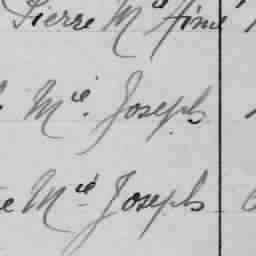 Pierre Mie Aimé
Mié. Joseph
e Mié Joseph